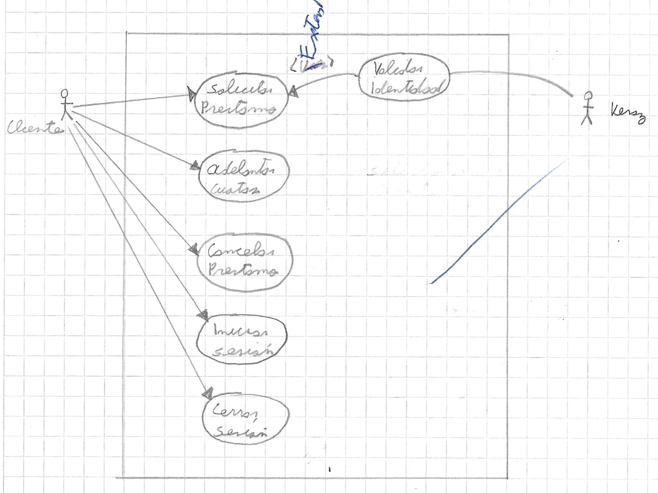 Extend
Solicitar
Prestamo
Validar
Identidad
Cliente
Adelantar
cuotas
Cancelar
Prestamo
Iniciar
sesión
Cerrar
sesión